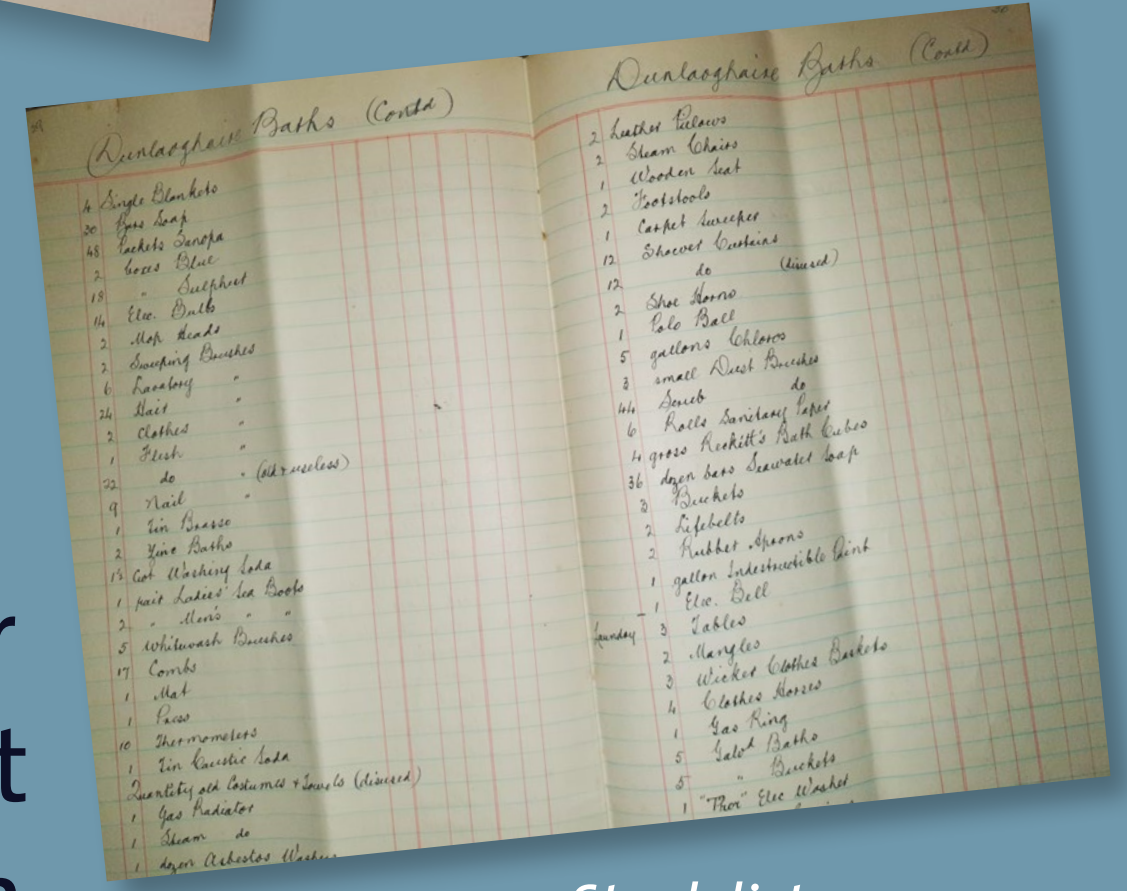 29
Dunlaoghaire Baths (Contd)
4 Single Blankets
30 Bars Soap
48 Packets Sanopa
2 boxes Blue
18 " Sulphur
14 Elec. Bulbs
2 Mop Heads
2 Sweeping Brushes
6 Lavatory "
24 Hair "
2 Clothes "
1 Flesh "
22 do " (old & useless)
9 Nail "
1 Tin Brasso
2 Zinc Baths
1½ Cwt Washing Soda
1 pair Ladies' Sea Boots
2 " Men's " "
5 Whitewash Brushes
17 Combs
1 Mat
1 Press
10 Thermometers
1 Tin Caustic Soda
Quantity old Costumes & Towels (disused)
1 Gas Radiator
1 Steam do
1 dozen Asbestos Washers
30
Dunlaoghaire Baths (Contd)
2 Leather Pillows
2 Steam Chairs
1 Wooden Seat
2 Footstools
1 Carpet Sweeper
12 Shower Curtains
12 do (disused)
2 Shoe Horns
1 Polo Ball
5 gallons Chloros
3 small Dust Brushes
44 Scrub do
6 Rolls Sanitary Paper
4 gross Reckitt's Bath Cubes
36 dozen bars Seawater Soap
3 Buckets
2 Lifebelts
2 Rubber Aprons
1 gallon Indestructible Paint
1 Elec. Bell
Laundry 3 Tables
2 Mangles
3 Wicker Clothes Baskets
4 Clothes Horses
1 Gas Ring
5 Galvd Baths
5 " Buckets
1 "Thor" Elec Washer
r
t